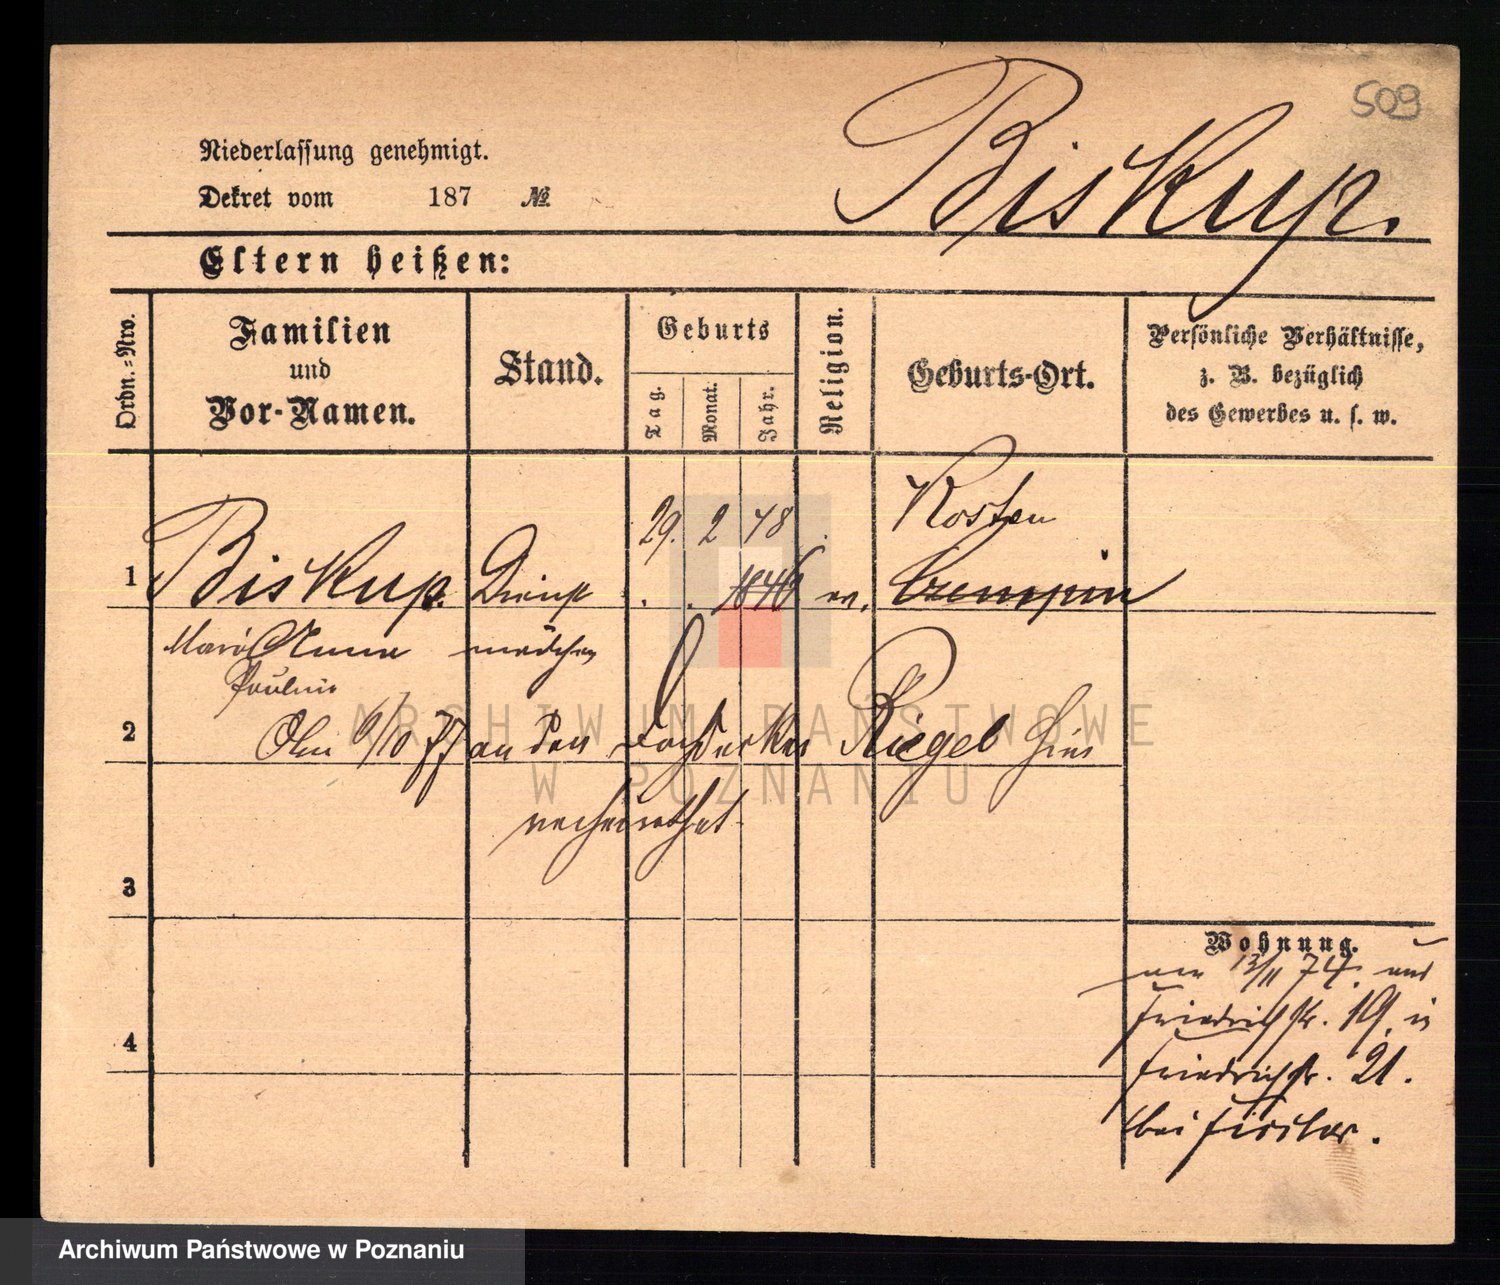 509
Biskup.
Niederlassung genehmigt.
Dekret vom 187 №
Eltern heißen:
Ordn.-Nro.
Familien
und
Vor-Namen.
Stand.
Geburts
Tag.
Monat.
Jahr.
Religion.
Geburts-Ort.
Persönliche Verhältnisse,
z. B. bezüglich
des Gewerbes u. s. w.
29. 2 48 Kosten
1 Biskup. Dienst 1846 ev. Czempin
Maria Anna mädchen
Pauline
2 Am 6/10 77 an den Riegel hier
verheirathet
3
4
Wohnung.
13/11 74. aus
Friedrichstr. 19. in
Friedrichstr. 21.
bei Fischer.
ARCHIWUM PAŃSTWOWE
W POZNANIU
Archiwum Państwowe w Poznaniu